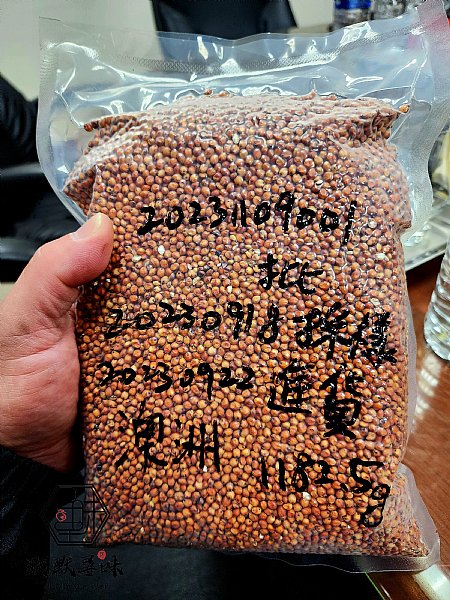 20231109001
批
20230918採樣
20230922進貨
澳洲 1182.5g